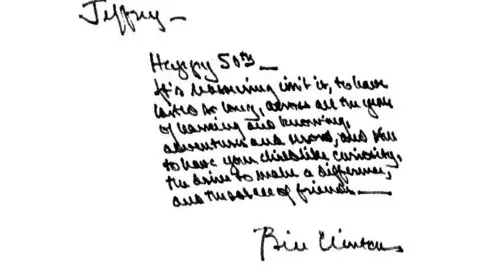 Jeffrey —
Happy 50th —
It's reassuring isn't it, to have
lasted as long, across all the years
of learning and knowing,
adventures and       , and still
to have your childlike curiosity,
the drive to make a difference,
and the solace of friends. —
Bill Clinton